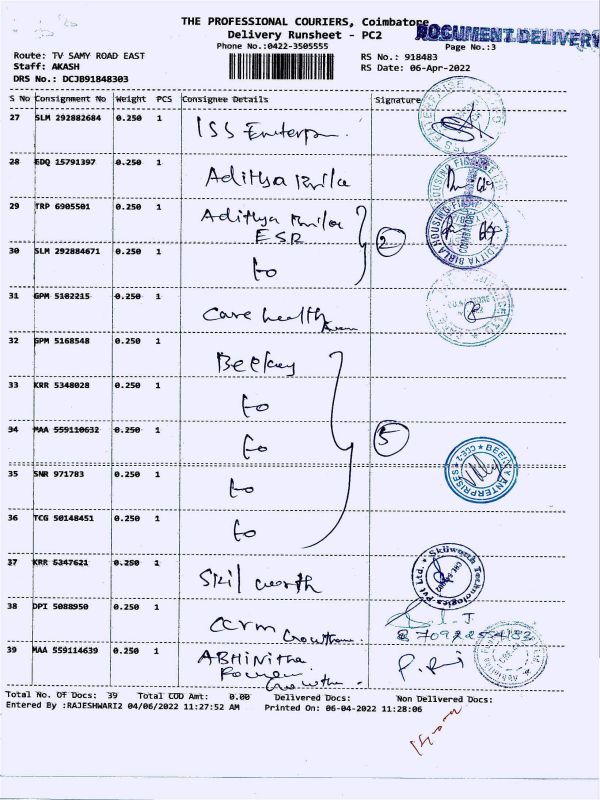 THE PROFESSIONAL COURIERS, Coimbatore
Delivery Runsheet - PC2
DOCUMENT DELIVERY
Phone No.:0422-3505555
Page No.:3
Route: TV SAMY ROAD EAST
RS No.: 918483
Staff: AKASH
RS Date: 06-Apr-2022
DRS No.: DCJB91848303
S No Consignment No Weight PCS Consignee Details Signature
27 SLM 292882684 0.250 1 ISS
28 EDQ 15791397 0.250 1 Adithya Birla
29 TRP 6905501 0.250 1 Adithya Birla
ESR
2
30 SLM 292884671 0.250 1 to
31 GPM 5102215 0.250 1 Care health
32 GPM 5168548 0.250 1 Beekay
33 KRR 5348028 0.250 1 to
34 MAA 559110632 0.250 1 to 5
35 SNR 971783 0.250 1 to
BEEKAY ENTERPRISES CBE-2
36 TCG 50148451 0.250 1 to
37 KRR 5347621 0.250 1 Skil worth
Skilworth Technologies Pvt Ltd.
38 DPI 5088950 0.250 1
39 MAA 559114639 0.250 1 ABHINITHA
Total No. Of Docs: 39 Total COD Amt: 0.00 Delivered Docs: Non Delivered Docs:
Entered By :RAJESHWARI2 04/06/2022 11:27:52 AM Printed On: 06-04-2022 11:28:06